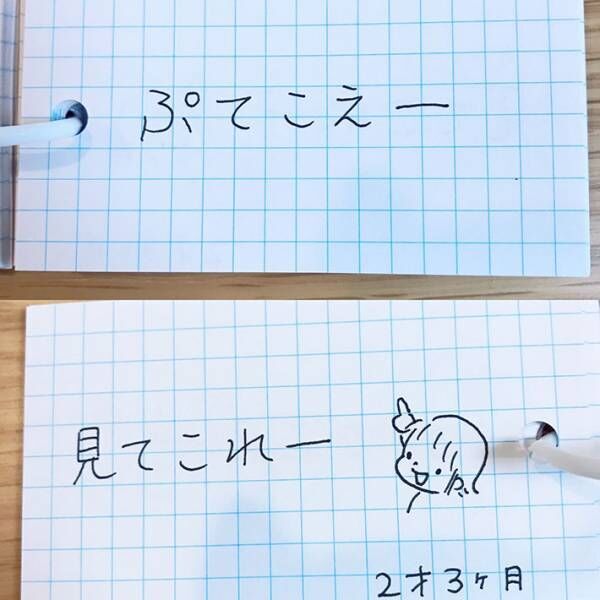 ぷてこえー
見てこれー
2才3ヶ月